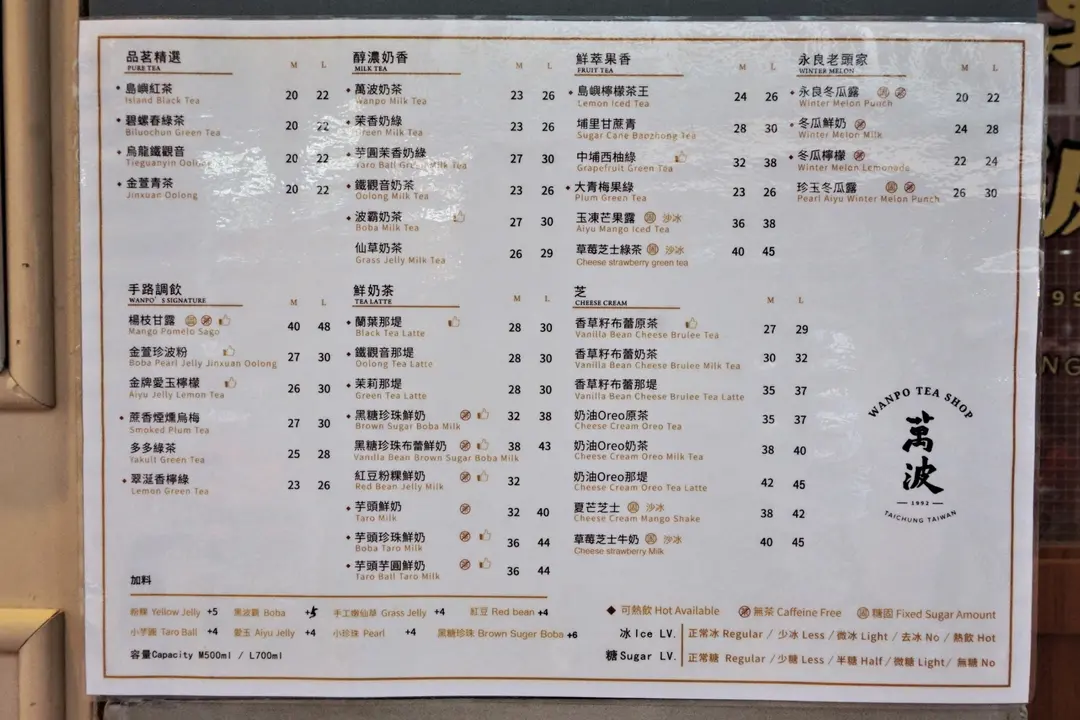 品茗精選
PURE TEA
M L
島嶼紅茶 20 22
Island Black Tea
碧螺春綠茶 20 22
Biluochun Green Tea
烏龍鐵觀音 20 22
Tieguanyin Oolong
金萱青茶 20 22
Jinxuan Oolong
醇濃奶香
MILK TEA
M L
萬波奶茶 23 26
Wanpo Milk Tea
茉香奶綠 23 26
Green Milk Tea
芋圓茉香奶綠 27 30
Taro Ball Green Milk Tea
鐵觀音奶茶 23 26
Oolong Milk Tea
波霸奶茶 27 30
Boba Milk Tea
仙草奶茶 26 29
Grass Jelly Milk Tea
鮮萃果香
FRUIT TEA
M L
島嶼檸檬茶王 24 26
Lemon Iced Tea
埔里甘蔗青 28 30
Sugar Cane Baozhong Tea
中埔西柚綠 32 38
Grapefruit Green Tea
大青梅果綠 23 26
Plum Green Tea
玉凍芒果露 沙冰 36 38
Aiyu Mango Iced Tea
草莓芝士綠茶 沙冰 40 45
Cheese strawberry green tea
永良老頭家
WINTER MELON
M L
永良冬瓜露 20 22
Winter Melon Punch
冬瓜鮮奶 24 28
Winter Melon Milk
冬瓜檸檬 22 24
Winter Melon Lemonade
珍玉冬瓜露 26 30
Pearl Aiyu Winter Melon Punch
手路調飲
WANPO'S SIGNATURE
M L
楊枝甘露 40 48
Mango Pomelo Sago
金萱珍波粉 27 30
Boba Pearl Jelly Jinxuan Oolong
金牌愛玉檸檬 26 30
Aiyu Jelly Lemon Tea
蔗香煙燻烏梅 27 30
Smoked Plum Tea
多多綠茶 25 28
Yakult Green Tea
翠涎香檸綠 23 26
Lemon Green Tea
鮮奶茶
TEA LATTE
M L
蘭葉那堤 28 30
Black Tea Latte
鐵觀音那堤 28 30
Oolong Tea Latte
茉莉那堤 28 30
Green Tea Latte
黑糖珍珠鮮奶 32 38
Brown Sugar Boba Milk
黑糖珍珠布蕾鮮奶 38 43
Vanilla Bean Brown Sugar Boba Milk
紅豆粉粿鮮奶 32
Red Bean Jelly Milk
芋頭鮮奶 32 40
Taro Milk
芋頭珍珠鮮奶 36 44
Boba Taro Milk
芋頭芋圓鮮奶 36 44
Taro Ball Taro Milk
芝
CHEESE CREAM
M L
香草籽布蕾原茶 27 29
Vanilla Bean Cheese Brulee Tea
香草籽布蕾奶茶 30 32
Vanilla Bean Cheese Brulee Milk Tea
香草籽布蕾那堤 35 37
Vanilla Bean Cheese Brulee Tea Latte
奶油Oreo原茶 35 37
Cheese Cream Oreo Tea
奶油Oreo奶茶 38 40
Cheese Cream Oreo Milk Tea
奶油Oreo那堤 42 45
Cheese Cream Oreo Tea Latte
夏芒芝士 沙冰 38 42
Cheese Cream Mango Shake
草莓芝士牛奶 沙冰 40 45
Cheese strawberry Milk
WANPO TEA SHOP
萬波
1992
TAICHUNG TAIWAN
加料
粉粿 Yellow Jelly +5 黑波霸 Boba +5 手工嫩仙草 Grass Jelly +4 紅豆 Red bean +4
小芋圓 Taro Ball +4 愛玉 Aiyu Jelly +4 小珍珠 Pearl +4 黑糖珍珠 Brown Suger Boba +6
容量Capacity M500ml / L700ml
可熱飲 Hot Available 無茶 Caffeine Free 糖固 Fixed Sugar Amount
冰 Ice LV. 正常冰 Regular / 少冰 Less / 微冰 Light / 去冰 No / 熱飲 Hot
糖 Sugar LV. 正常糖 Regular / 少糖 Less / 半糖 Half / 微糖 Light / 無糖 No